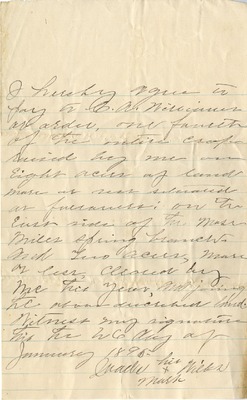 I hereby agree to
pay to C. A. Williams
or order, one fourth
of the entire crops
raised by me on
Eight acres of land
more or less situated
as follows: on the
East side of the
Miles Spring branch
And two acres, more
or less, cleared by
me this year adjoining
the above described lands
Witness my signature
this the day of
January 189
his
mark